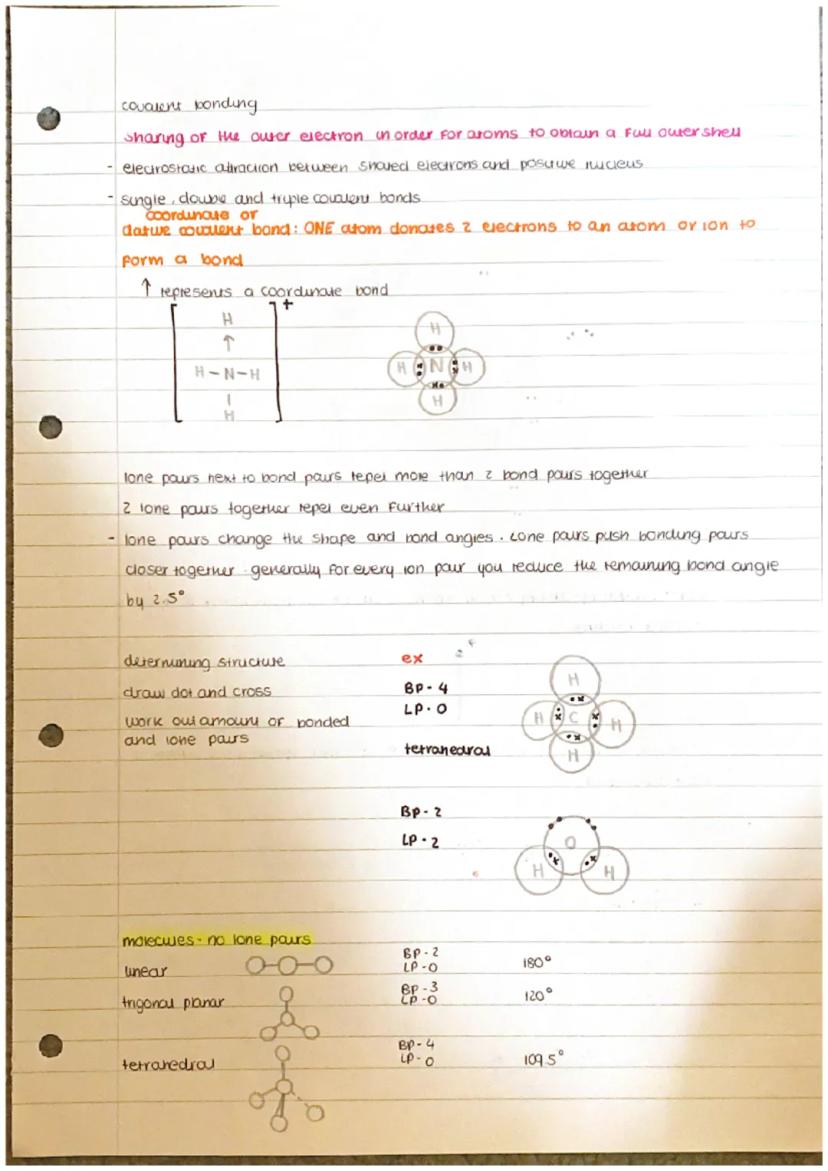 covalent bonding
sharing of the outer electron in order for atoms to obtain a full outer shell
- electrostatic attraction between shared electrons and positive nucleus
- single, double and triple covalent bonds
coordinate or
dative covalent bond: ONE atom donates 2 electrons to an atom or ion to
form a bond
↑ represents a coordinate bond
+
H
↑
H - N - H
|
H
H
H N H
H
lone pairs next to bond pairs repel more than 2 bond pairs together
2 lone pairs together repel even further
- lone pairs change the shape and bond angles. Lone pairs push bonding pairs
closer together. generally for every lon pair you reduce the remaining bond angle
by 2.5°
determining structure
draw dot and cross
work out amount of bonded
and lone pairs
ex
BP - 4
LP - 0
tetrahedral
H
H C H
H
BP - 2
LP - 2
O
H H
molecules - no lone pairs
linear BP - 2 180°
LP - 0
trigonal planar BP - 3 120°
LP - 0
tetrahedral BP - 4 109.5°
LP - 0